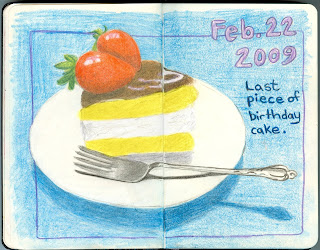 Feb. 22
2009
Last
piece of
birthday
cake.